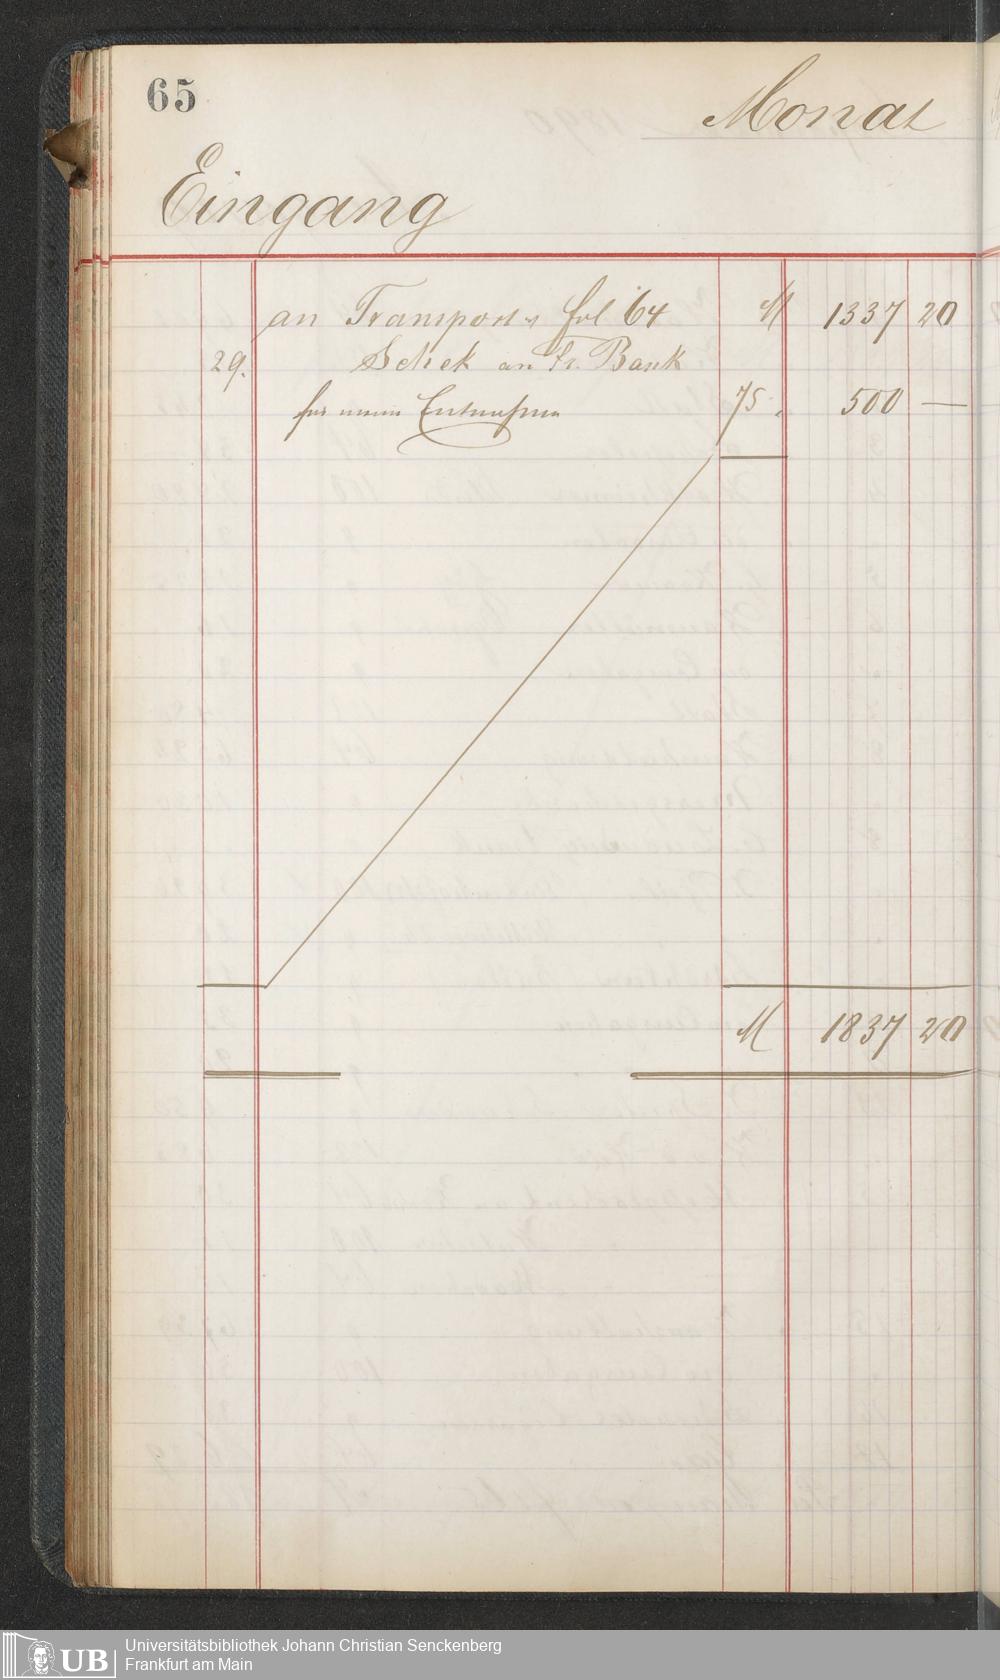 65
Monat
Eingang
an Transport fol 64 M 1337 20
29. Schek an Fr. Bank
für meine Entnahme 75 500 —
M 1837 20
UB Universitätsbibliothek Johann Christian Senckenberg
Frankfurt am Main